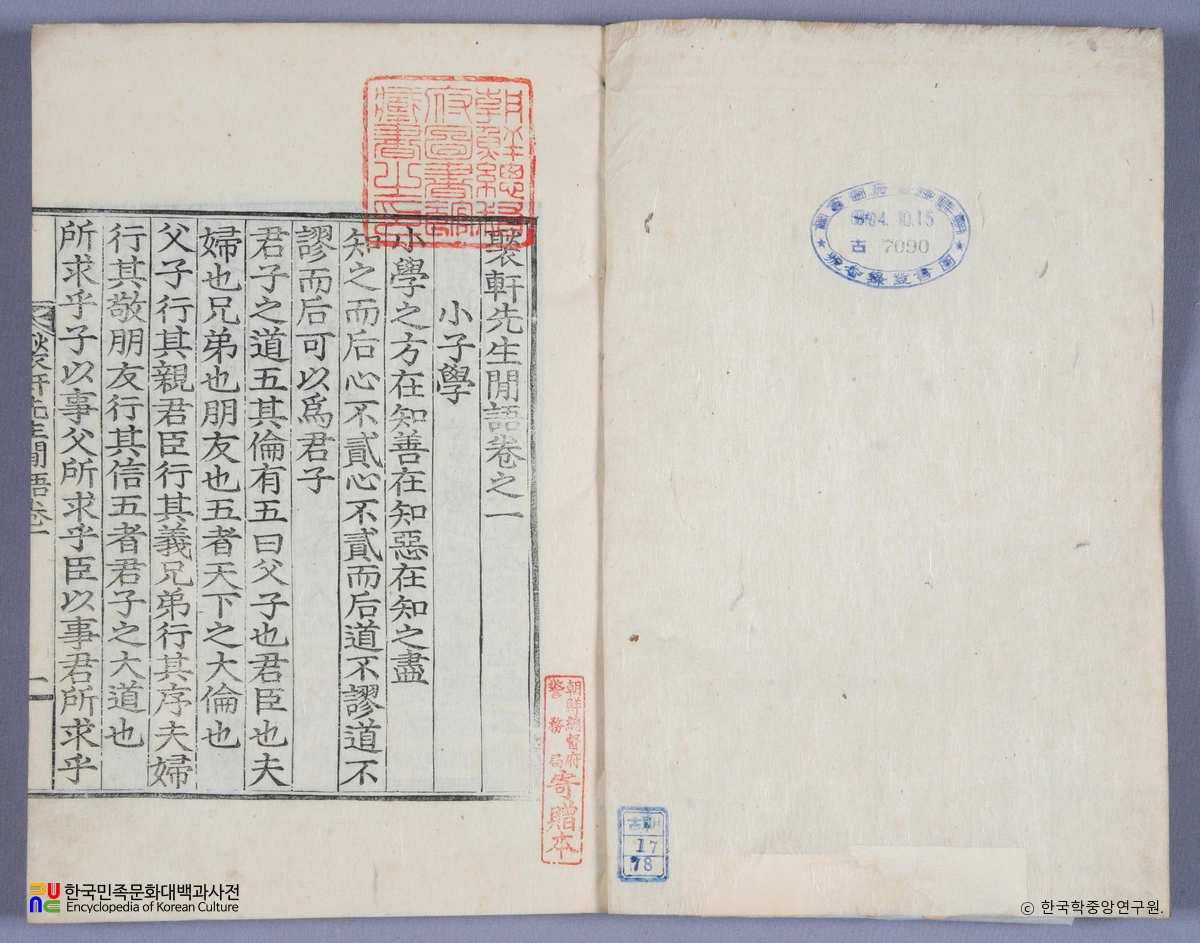 朝鮮總督
府圖書館
藏書之印
褧軒先生閒語卷之一
小子學
小學之方在知善在知惡在知之盡
知之而后心不貳心不貳而后道不謬道不
謬而后可以爲君子
君子之道五其倫有五曰父子也君臣也夫
婦也兄弟也朋友也五者天下之大倫也
父子行其親君臣行其義兄弟行其序夫婦
行其敬朋友行其信五者君子之大道也
所求乎子以事父所求乎臣以事君所求乎
褧軒先生閒語卷一
一
朝鮮總督府
警務局
寄贈本
朝鮮總督府圖書館
4.10.15
古 7090
圖書登錄番號
古朝
17
78
한국민족문화대백과사전
Encyclopedia of Korean Culture
ⓒ 한국학중앙연구원.